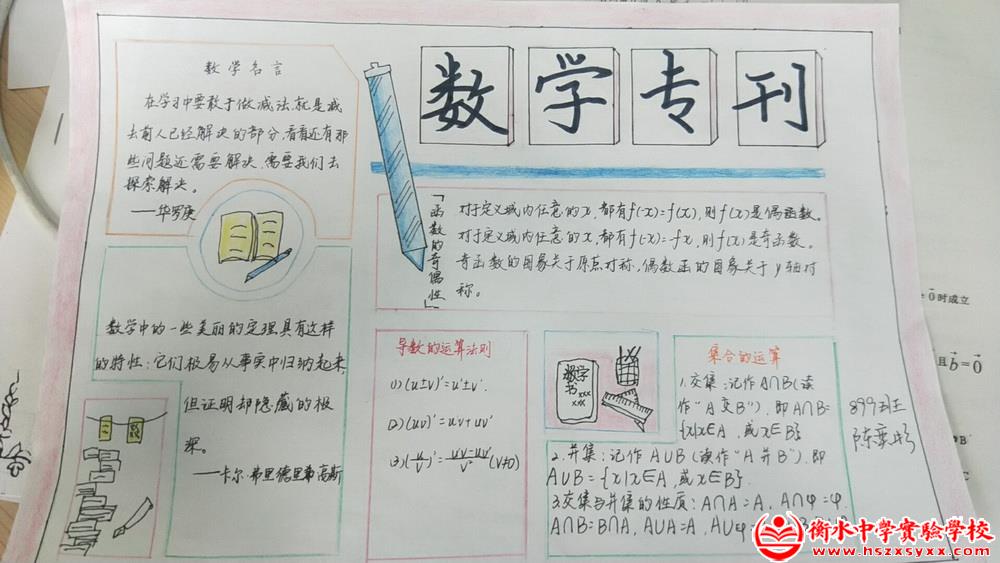 数学专刊
数学名言
在学习中要敢于做减法,就是减
去前人已经解决的部分,看看还有那
些问题还需要解决,需要我们去
探索解决。
——华罗庚
「函数的奇偶性」
对于定义域内任意的x,都有f(x)=f(x),则f(x)是偶函数。
对于定义域内任意的x,都有f(x)=-fx,则f(x)是奇函数。
奇函数的图象关于原点对称,偶数函的图象关于y轴对
称。
数学中的一些美丽的定理具有这样
的特性:它们极易从事实中归纳起来,
但证明却隐藏的极
深。
——卡尔·弗里德里希·高斯
导数的运算法则
(1)(u±v)'=u'±v'.
(2)(uv)'=u'v+uv'
(3)(u/v)'=u'v-uv'/v²(v≠0)
数学
书
xxx
xx
集合的运算
1.交集:记作A∩B(读
作"A交B"),即A∩B=
{x|x∈A,或x∈B}
2.并集:记作A∪B(读作"A并B"),即
A∪B={x|x∈A,或x∈B}.
3.交集与并集的性质:A∩A=A,A∩φ=φ.
A∩B=B∩A,A∪A=A,A∪φ
899班
陈
0时成立
且b=0
衡水中学实验学校
www.hszxsyxx.com